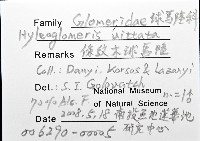 Family Glomeridae 球馬陸科
Hyleoglomeris vittata
Remarks 條紋球馬陸
Coll.: Danyi. Korsos & Lazanyi
Det.: S. I. Golovatch
70% Alc. National Museum of Natural Science n.=1
Date 2008.5.18 南投
006290-00005 研究中心